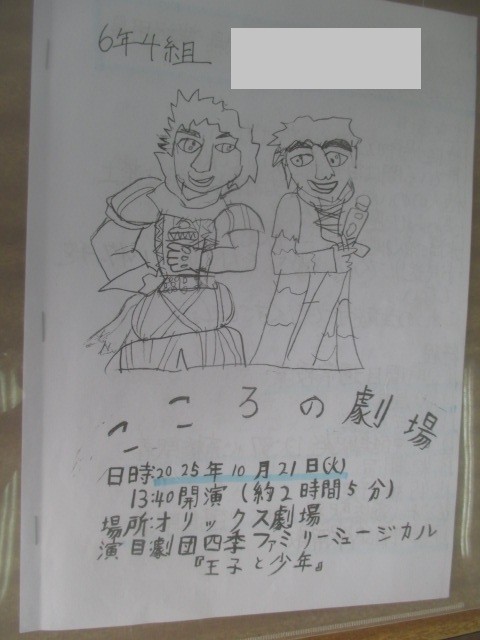 6年4組
こころの劇場
日時:2025年10月21日(火)
13:40開演(約2時間5分)
場所:オリックス劇場
演目劇団四季ファミリーミュージカル
『王子と少年』